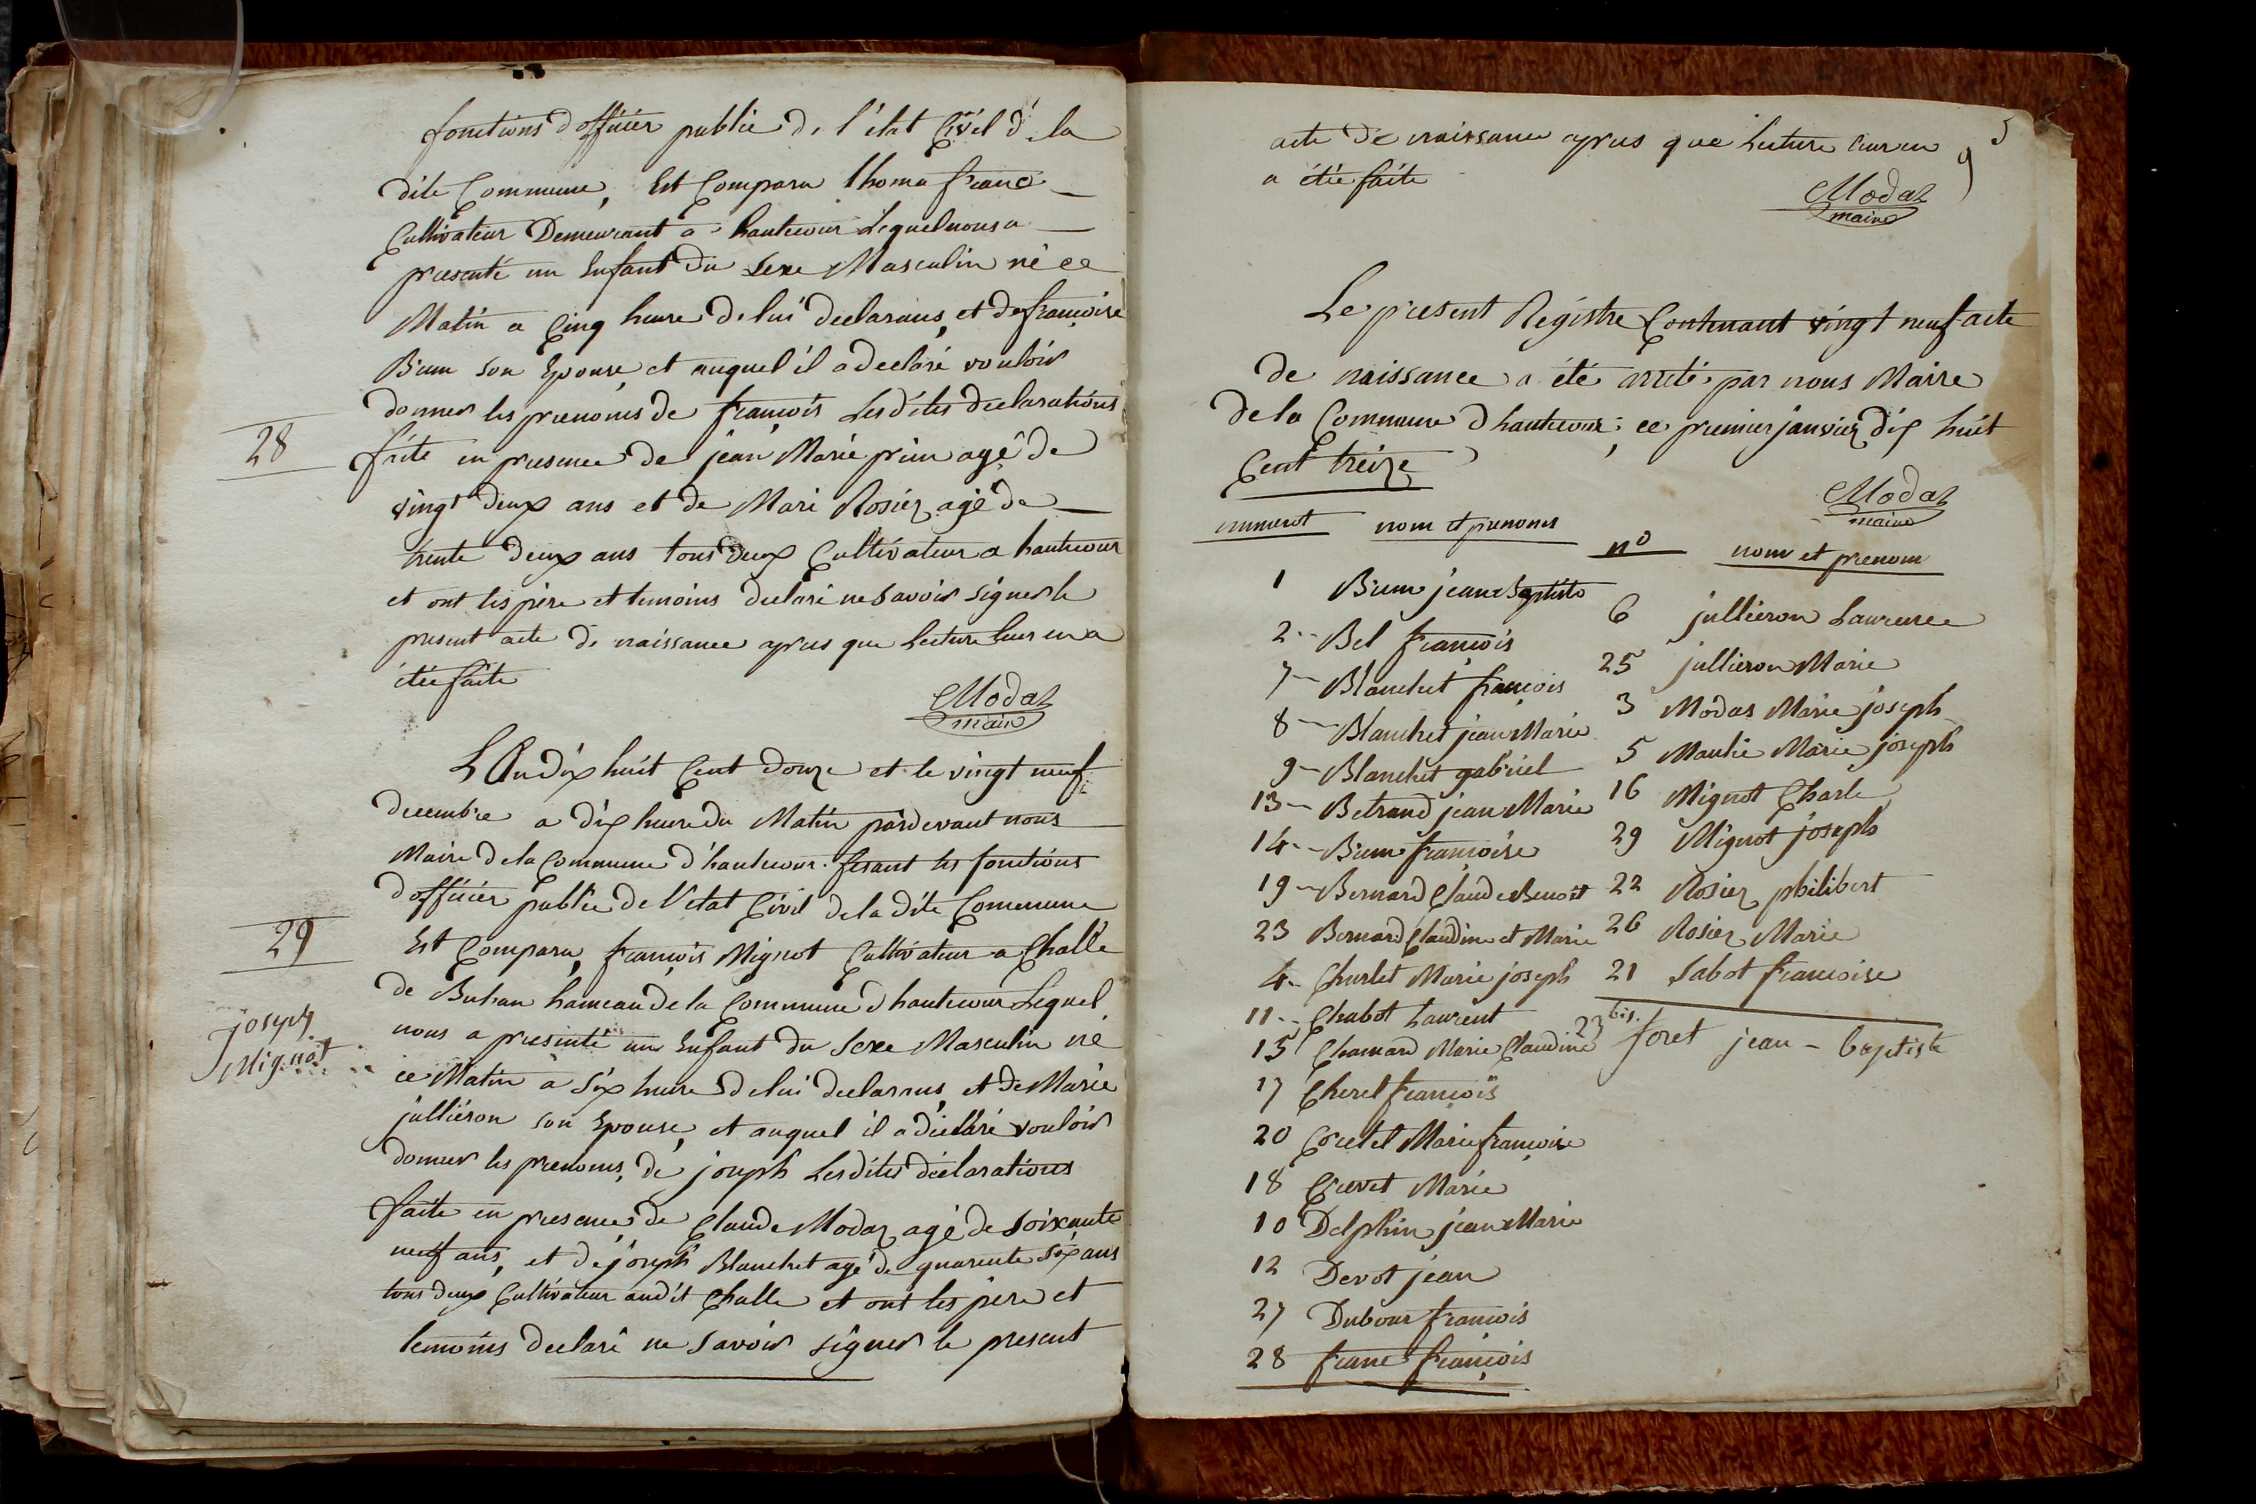 fonctions d'officier public de l'état Civil de la
dite Commune, Est Comparu thoma franc
Cultivateur Demeurant a hautecour Lequel nous a
presenté un Enfant du Sexe Masculin né ce
Matin a Cinq heure de lui declarans, et de françoise
Bium son Epouse et auquel il a declaré vouloir
donner les prenoms de françois Les dites declarations
28
faite en presence de jean Marie prim agé de
vingt deux ans et de Mari Rosiez agé de
trente deux ans tous deux Cultivateur a hautecour
et ont les père et temoins declaré ne Savoir Signer le
present acte de naissance apres que Lecture leur en a
étée faite
Modaz
maire
L'An dix huit Cent douze et le vingt neuf
decembre a dix heure du Matin pardevant nous
Maire de la Commune d'hautecour fesant les fonctions
d'officier public de l'etat Civil de la dite Commune
29
Est Comparu, françois Mignot Cultivateur a Challe
de Buhan hameau de la Commune d hautecour Lequel
joseph
Mignot
nous a presenté un Enfant du Sexe Masculin né
ce Matin a Six heure de lui declarans, et de Marie
julliéron son Epouse, et auquel il a déclaré vouloir
donner les prenoms, de joseph Les dites déclarations
faite en presence, de Claude Modaz agé de soixante
neuf ans, et de joseph Blanchet agé de quarente Six ans
tous deux Cultivateur audit Challe et ont les père et
temoins declaré ne Savoir Signer le present
5
acte de naissance apres que Lecture leur en
9
a étée faite
Modaz
maire
Le present Régistre Contenant vingt neuf acte
de naissance a été arrité par nous Maire
de la Commune d hautecour, ce premier janvier dix huit
Cent treize
Modaz
maire
numerot nom et prenoms
1 Bium jean Baptiste
2 Bel françois
7 Blanchet françois
8 Blanchet jean Marie
9 Blanchet gabriel
13 Betrand jean Marie
14 Bium françoise
19 Bernard Claude Benoit
23 Bernard Claudine et Marie
4 Churlet Marie joseph
11 Chabot Laurent
15 Chanard Marie Claudine
17 Cherel françois
20 Cretet Marie françoise
18 Crevet Marie
10 Delphin jean Marie
12 Devot jean
27 Dubour françois
28 franc françois
n° nom et prenom
6 julliéron Laurence
25 julliéron Marie
3 Modas Marie joseph
5 Maulie Marie joseph
16 Mignot Charle
29 Mignot joseph
22 Rosiez philibert
26 Rosiez Marie
21 Sabot francoise
23 bis. foret jean - baptiste